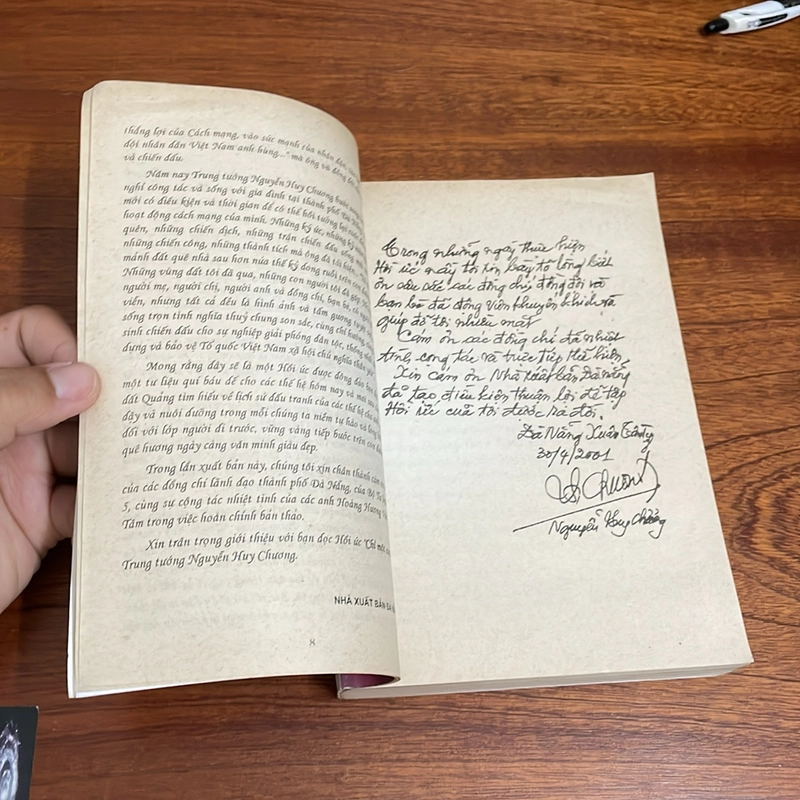 thắng lợi của Cách mạng, vào sức mạnh của nhân dân,
đội nhân dân Việt Nam anh hùng..." mà ông và đồng
và chiến đấu.
Năm nay Trung tướng Nguyễn Huy Chương
nghỉ công tác và sống với gia đình tại thành phố Đà
mới có điều kiện và thời gian để có thể hồi tưởng lại
hoạt động cách mạng của mình. Những ký ức, những kỷ
quên, những chiến dịch, những trận chiến đấu
những chiến công, những thành tích mà ông đã
mảnh đất quê nhà sau hơn nửa thế kỷ dong ruổi trên
Những vùng đất tôi đã qua, những con người tôi đã gặp
người mẹ, người chị, người anh và đồng chí, bạn bè,
viễn, nhưng tất cả đều là hình ảnh và tấm gương
sống trọn tình nghĩa thuỷ chung son sắc, cùng chí hướng
sinh chiến đấu cho sự nghiệp giải phóng dân tộc, thống
dụng và bảo vệ Tổ quốc Việt Nam xã hội chủ nghĩa
Mong rằng đây sẽ là một Hồi ức được đông đảo
một tư liệu quí báu để cho các thế hệ hôm nay và mai
đất Quảng tìm hiểu về lịch sử đấu tranh của các thế hệ cha
dậy và nuôi dưỡng trong mỗi chúng ta niềm tự hào và
đối với lớp người đi trước, vững vàng tiếp bước trên con
quê hương ngày càng văn minh giàu đẹp.
Trong lần xuất bản này, chúng tôi xin chân thành cảm
của các đồng chí lãnh đạo thành phố Đà Nẵng, của Bộ Tư
5, cùng sự cộng tác nhiệt tình của các anh Hoàng Hương
Tâm trong việc hoàn chỉnh bản thảo.
Xin trân trọng giới thiệu với bạn đọc Hồi ức "Chỉ một
Trung tướng Nguyễn Huy Chương.
NHÀ XUẤT BẢN ĐÀ
8
Trong những ngày thực hiện
Hồi ức này tôi xin bày tỏ lòng biết
ơn sâu sắc các đồng chí, đồng đội và
bạn bè đã động viên khuyến khích và
giúp đỡ tôi nhiều mặt
Cám ơn các đồng chí đã nhiệt
tình, cộng tác và trực tiếp thể hiện,
Xin cám ơn Nhà xuất bản Đà Nẵng
đã tạo điều kiện thuận lợi để tập
Hồi ức của tôi được ra đời.
Đà Nẵng Xuân
30/4/2001
Chương
Nguyễn Huy Chương